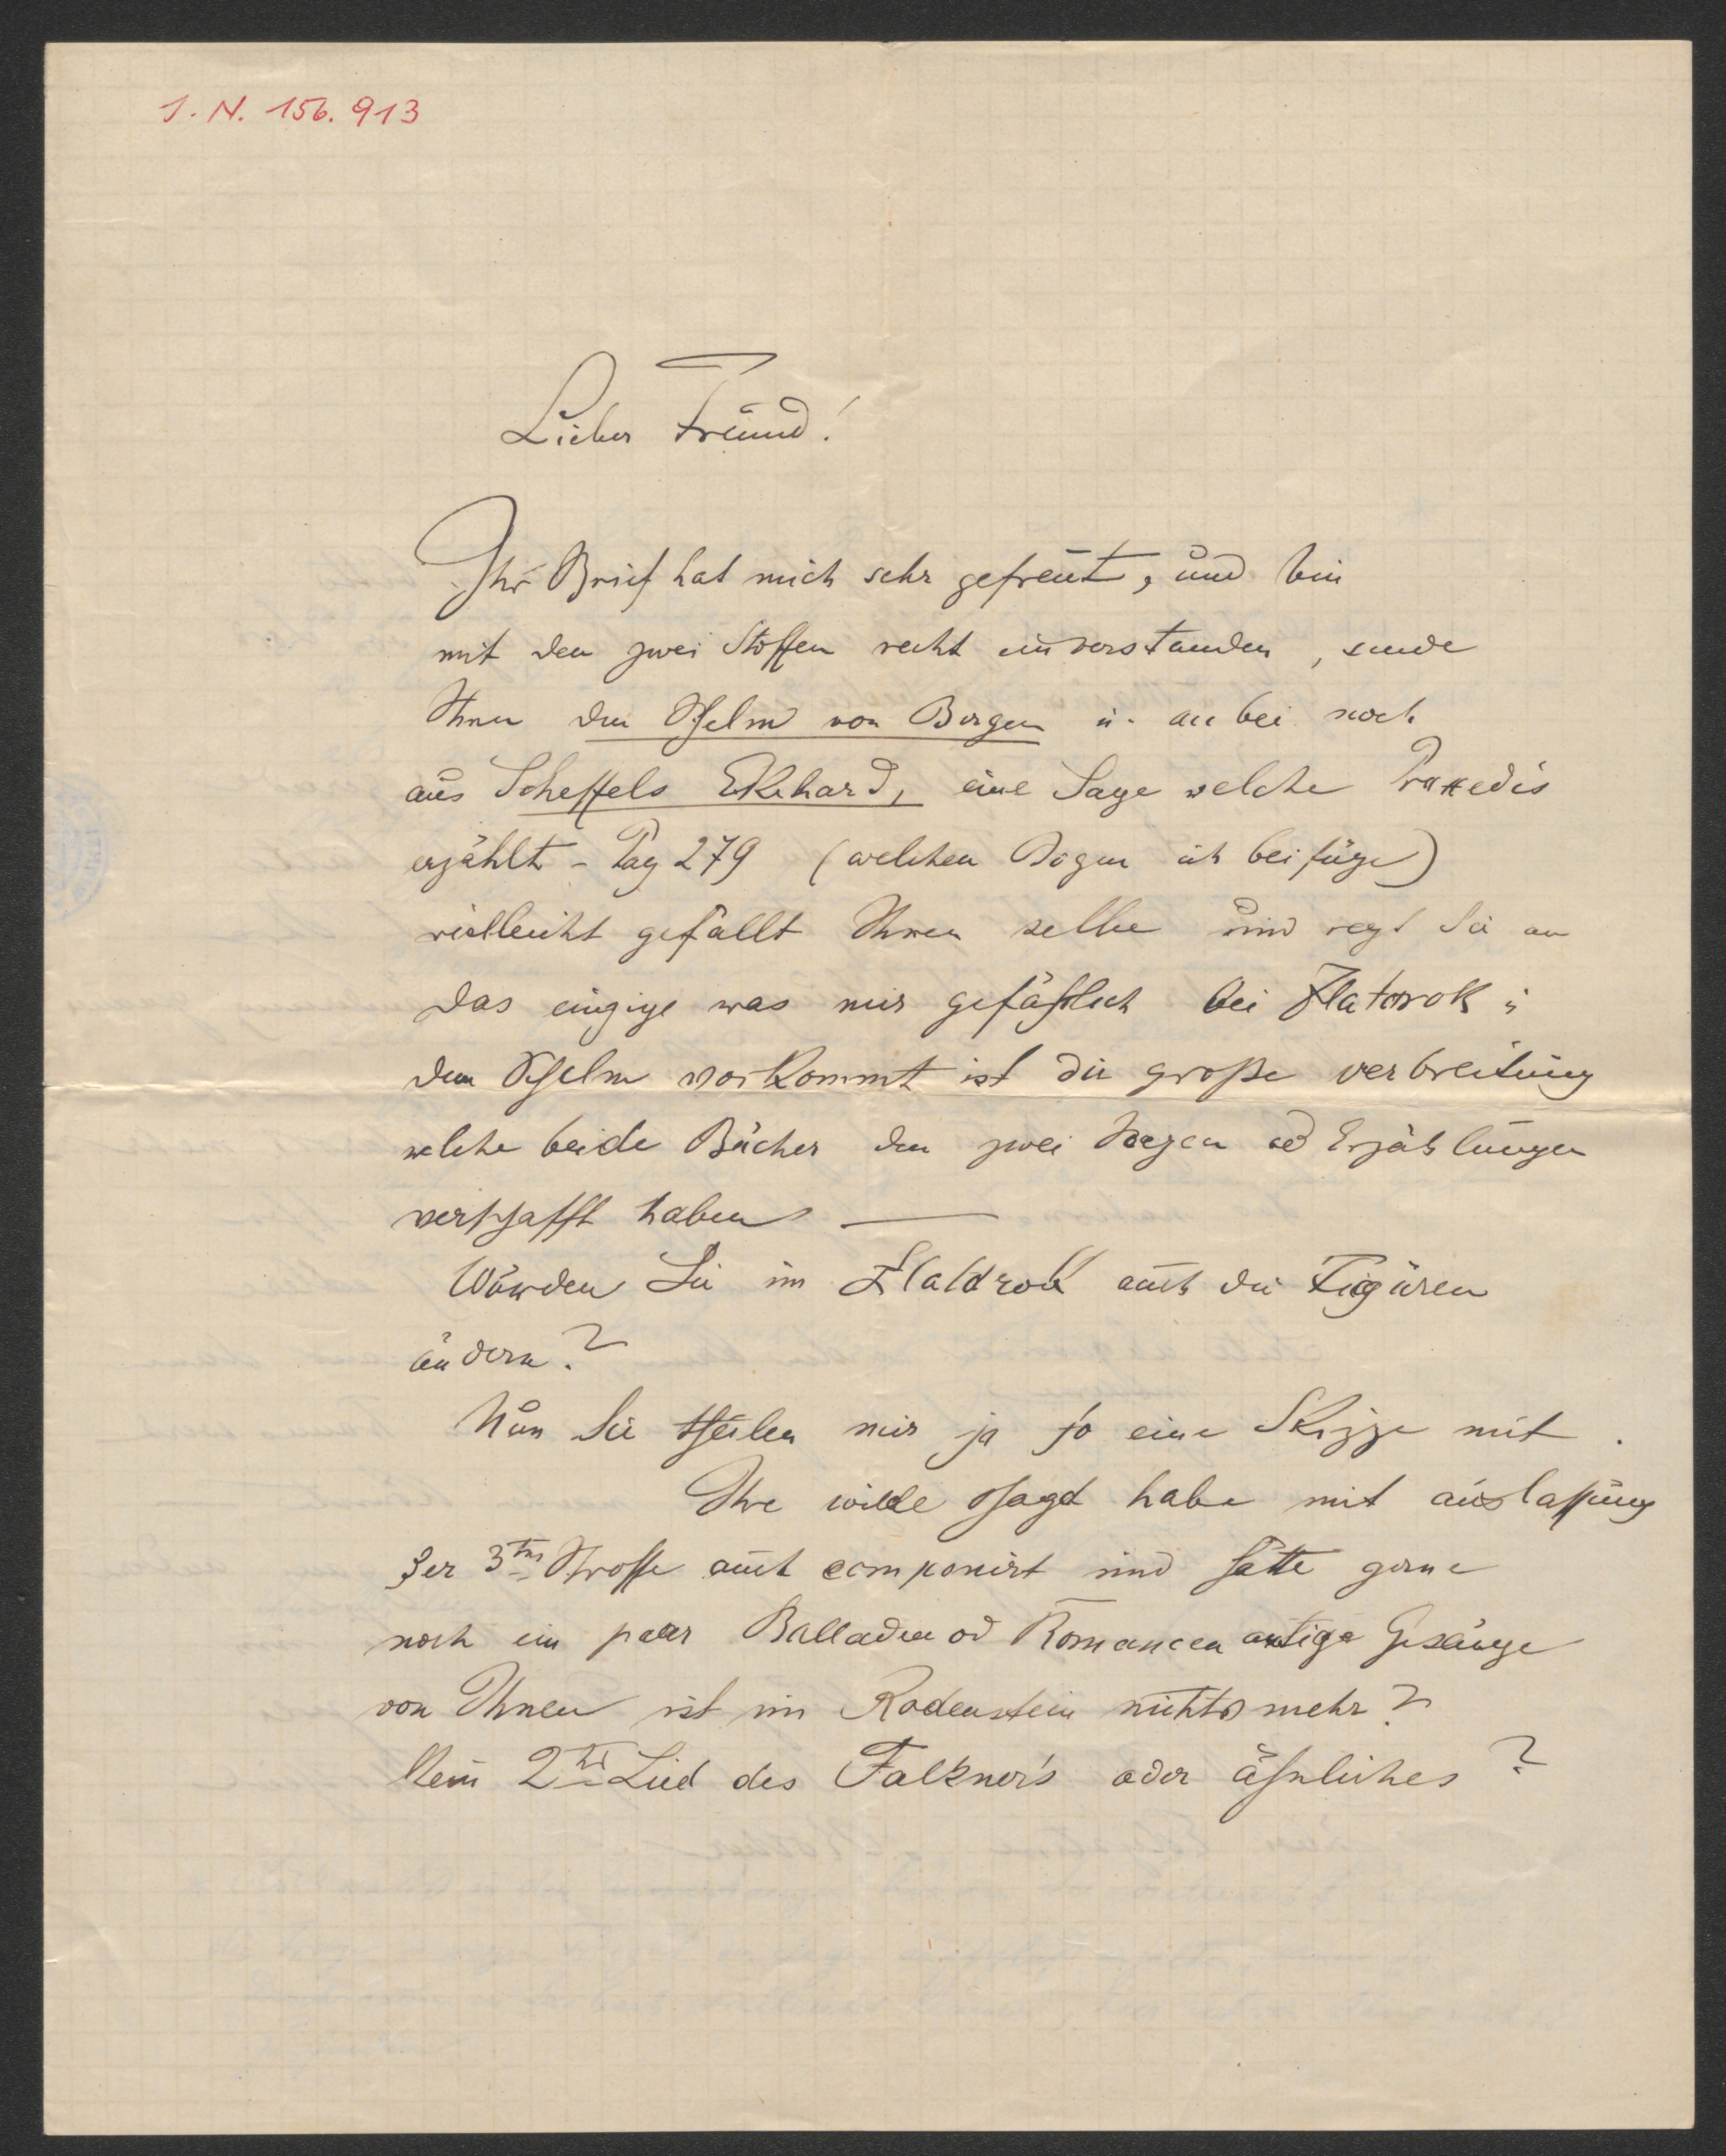 J. N. 156.913
Lieber Freund!
Ihr Brief hat mich sehr gefreut, und bin
mit den zwei Stoffen recht einverstanden, sende
Ihnen den Schelm von Bergen u. anbei noch
aus Scheffels Ekkehard, eine Sage welche Praxedis
erzählt - Pag 279 (welchen Bogen ich beifüge)
vielleicht gefällt Ihnen selbe und regt Sie an
Das einzige was mir gefährlich bei Zlatorok u
dem Schelm vorkommt ist die große verbreitung
welche beide Bücher den zwei Sagen od Erzählungen
verschafft haben —
Würden Sie im Zlatorok auch die Figuren
ändern?
Nun Sie theilen mir ja so eine Skizze mit.
Ihre wilde Jagd habe mit auslassung
der 3ten Stroffe auch componirt und hätte gerne
noch ein paar Balladen od Romancen artige Gesänge
von Ihnen ist im Rodenstein nichts mehr?
Kein 2tes Lied des Falkner's oder ähnliches?